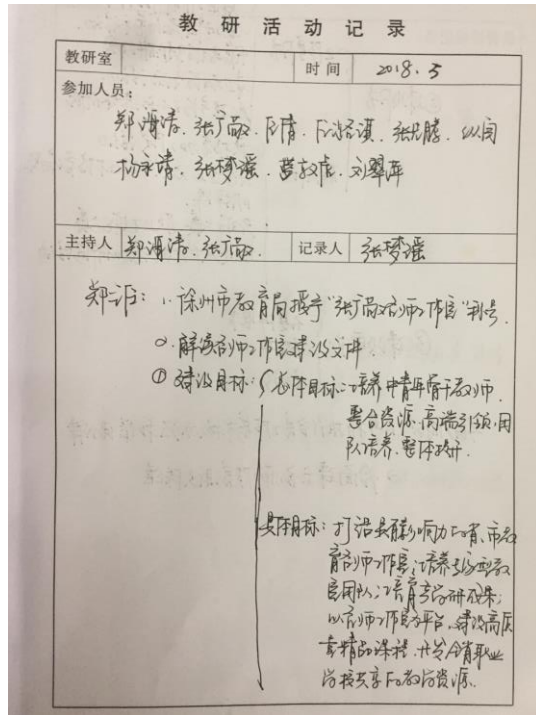 教研活动记录
教研室 时间 2018.3
参加人员：
郑酒清、张广敬、张允腾、纵闯
杨永靖、张梦瑶、刘翠萍
主持人 张广敬 记录人 张梦瑶
1、徐州市教育局授予"张广敬名师工作室"称号.
2、解读名师工作室建设文件.
① 建设目标：总体目标：培养中青年骨干教师.
整合资源、高端引领、团
队培养、整体提升.
具体目标：打造具有影响力的省、市教
育名师工作室；培养专家型教
官团队；培育教学研成果；
以名师工作室为平台，建设高质
量精品课程，开发全省职业
学校共享的教学资源.